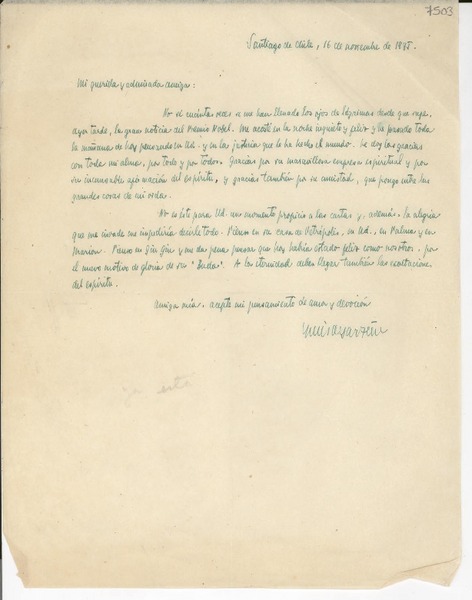 7503
Santiago de Chile, 16 de noviembre de 1945.
Mi querida y admirada amiga:
No sé cuántas veces se me han llenado los ojos de lágrimas desde que supe,
ayer tarde, la gran noticia del Premio Nobel. Me acosté en la noche inquieto y feliz y he pasado toda
la mañana de hoy pensando en Ud. y en la justicia que le ha hecho el mundo. Le doy las gracias
con toda mi alma, por todo y por todos. Gracias por su maravillosa empresa espiritual y por
su incansable afirmación del espíritu, y gracias también por su amistad, que pongo entre las
grandes cosas de mi vida.
No es este para Ud. un momento propicio a las cartas y, además, la alegría
que me invade me impediría decirle todo. Pienso en su casa de Petrópolis, en Ud., en Palma y en
Marion. Pienso en Yin Yin y me da pena pensar que hoy habría estado feliz como nosotros, por
el nuevo motivo de gloria de su "Buda". A la eternidad deben llegar también las exaltaciones
del espíritu.
Amiga mía, acepte mi pensamiento de amor y devoción
Luis Oyarzún
ya está